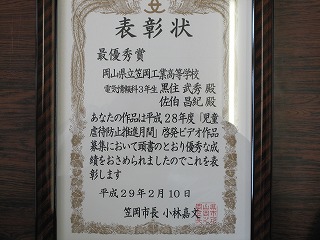 表彰状
最優秀賞
岡山県立笠岡工業高等学校
電気情報科3年生 黒住 武秀 殿
佐伯 昌紀 殿
あなたの作品は平成28年度「児童
虐待防止推進月間」啓発ビデオ作品
募集において頭書のとおり優秀な成
績をおさめられましたのでこれを表
彰します
平成29年2月10日
笠岡市長 小林嘉文